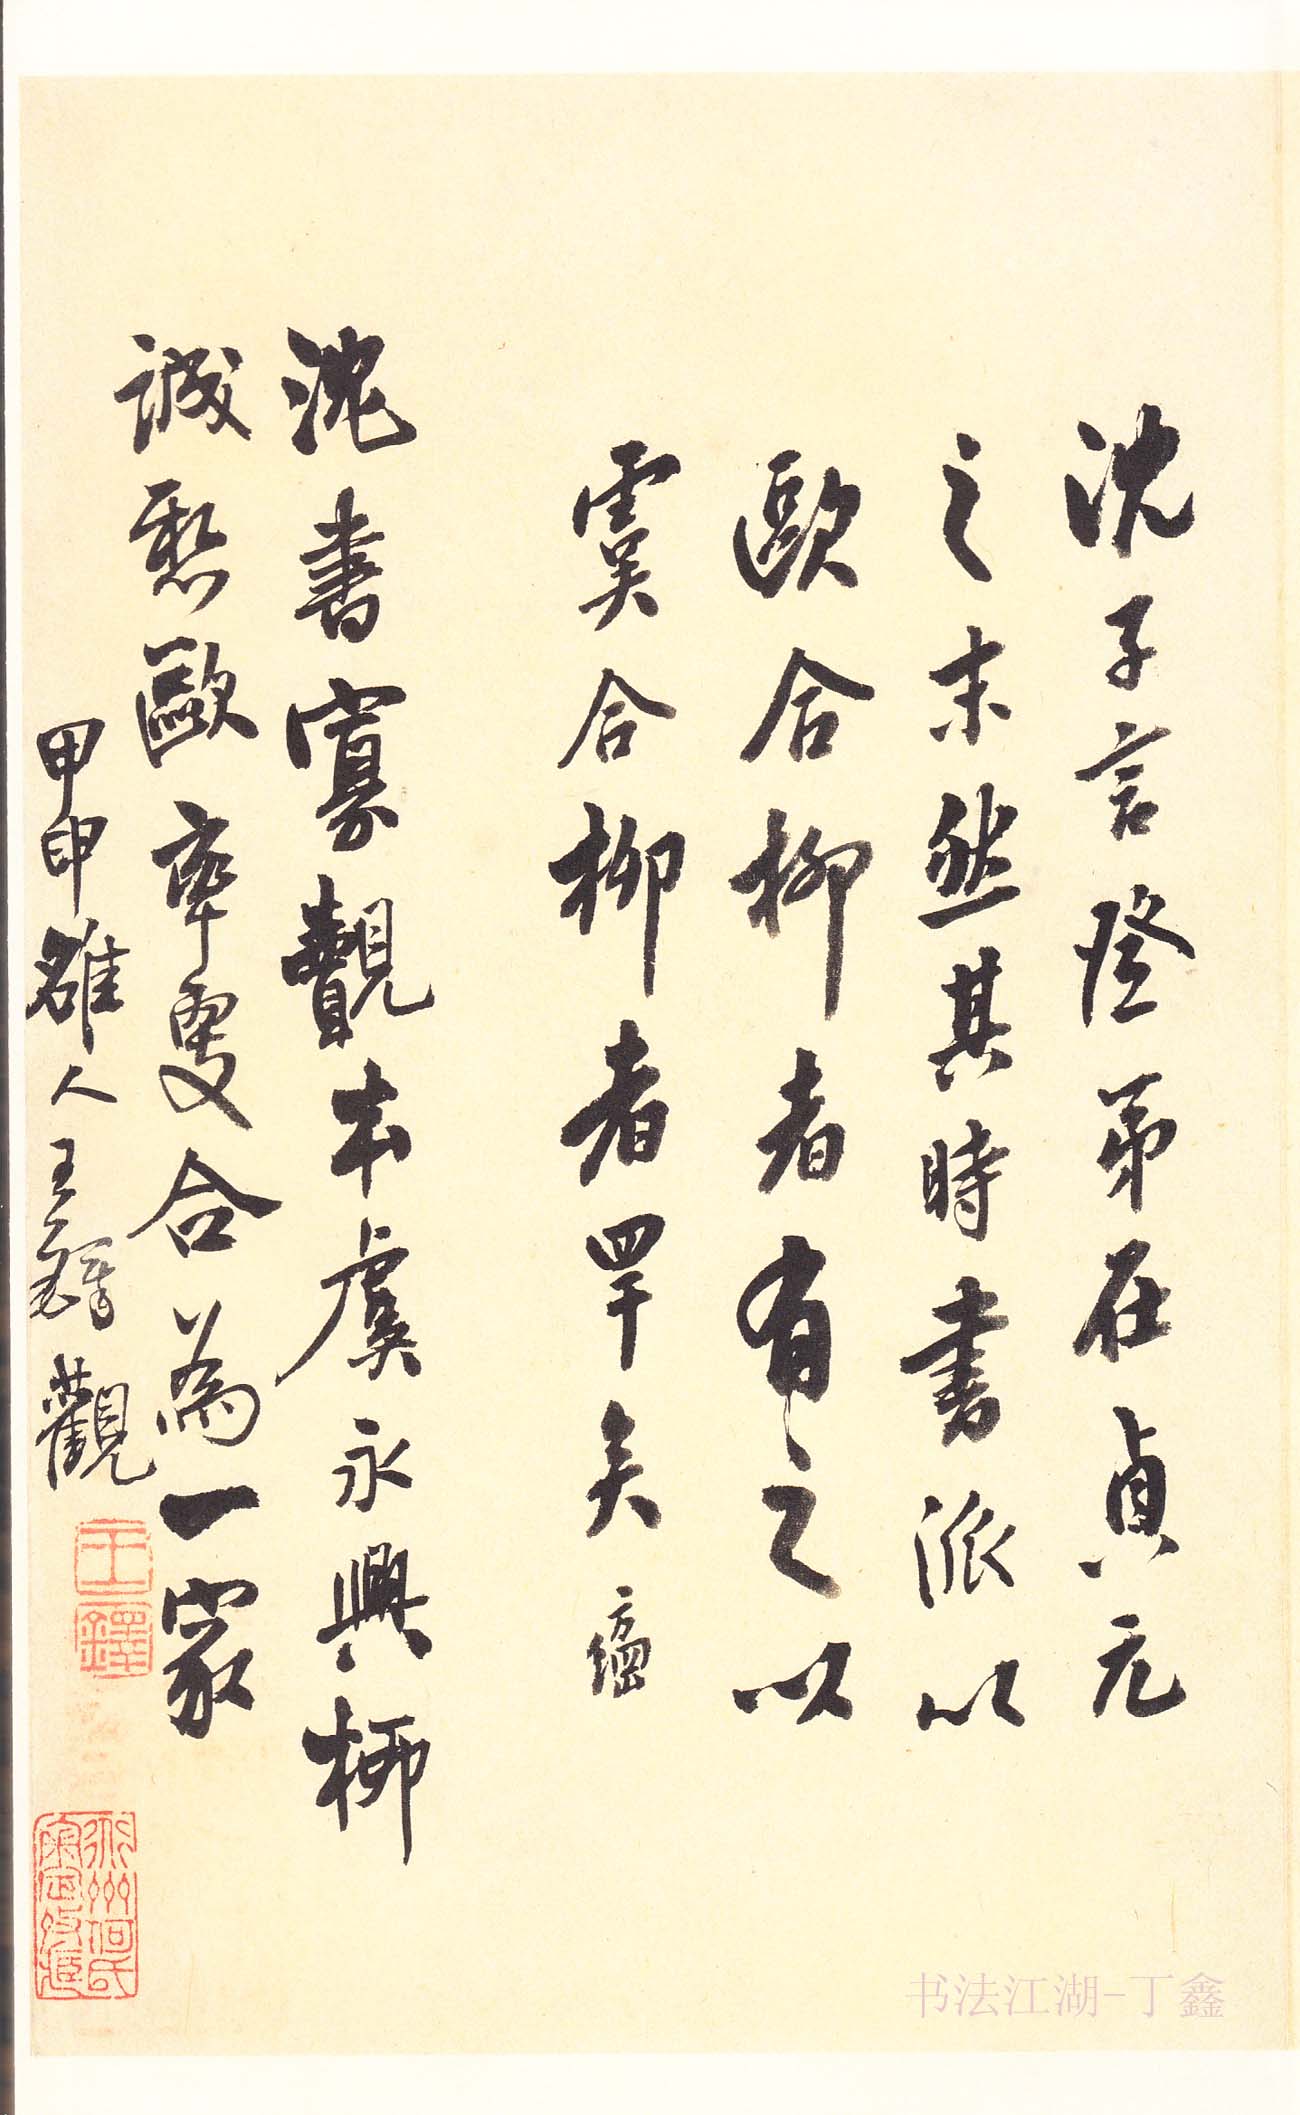 沈子言登弟在貞元
之末然其時書派以
歐合柳者有之以
虞合柳者罕矣 蘊
沈書寡觀本虞永興柳
誠懸歐率更合為一家
甲申雒人王鐸觀
王鐸
書法江湖-丁鑫